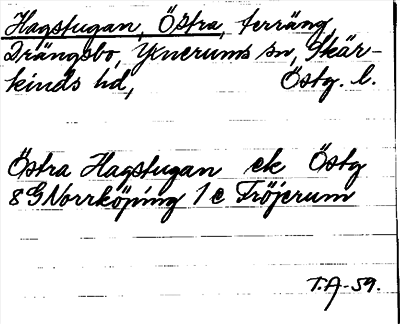 Hagstugan, Östra, terräng,
Drängsbo, Yxnerums sn, Skär-
kinds hd, Östg. l.
Östra Hagstugan ek Östg
8 G Norrköping 1 c Fröjerum
T.A-59.